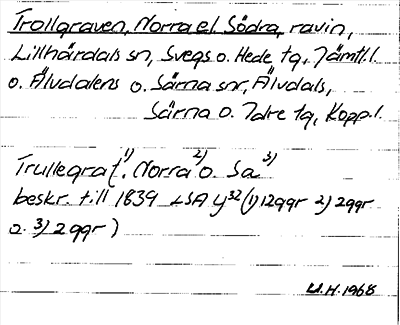 Trollgraven, Norra el. Södra, ravin,
Lillhärdals sn, Svegs o. Hede tg, Jämtl. l.
o. Älvdalens o. Särna snr, Älvdals,
Särna o. Idre tg, Kopp. l.
Trullegraf 1). Norra 2) o. Sa 3)
beskr. till 1839 LSA Y32 (1) 12ggr 2) 2ggr
o. 3) 2ggr)
U.H. 1968